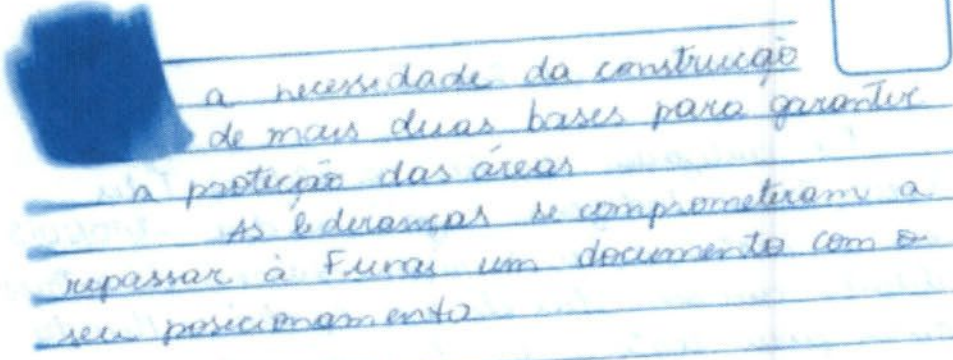 a necessidade da construção
de mais duas bases para garantir
a proteção das áreas
As lideranças se comprometeram a
repassar à Funai um documento com o
seu posicionamento